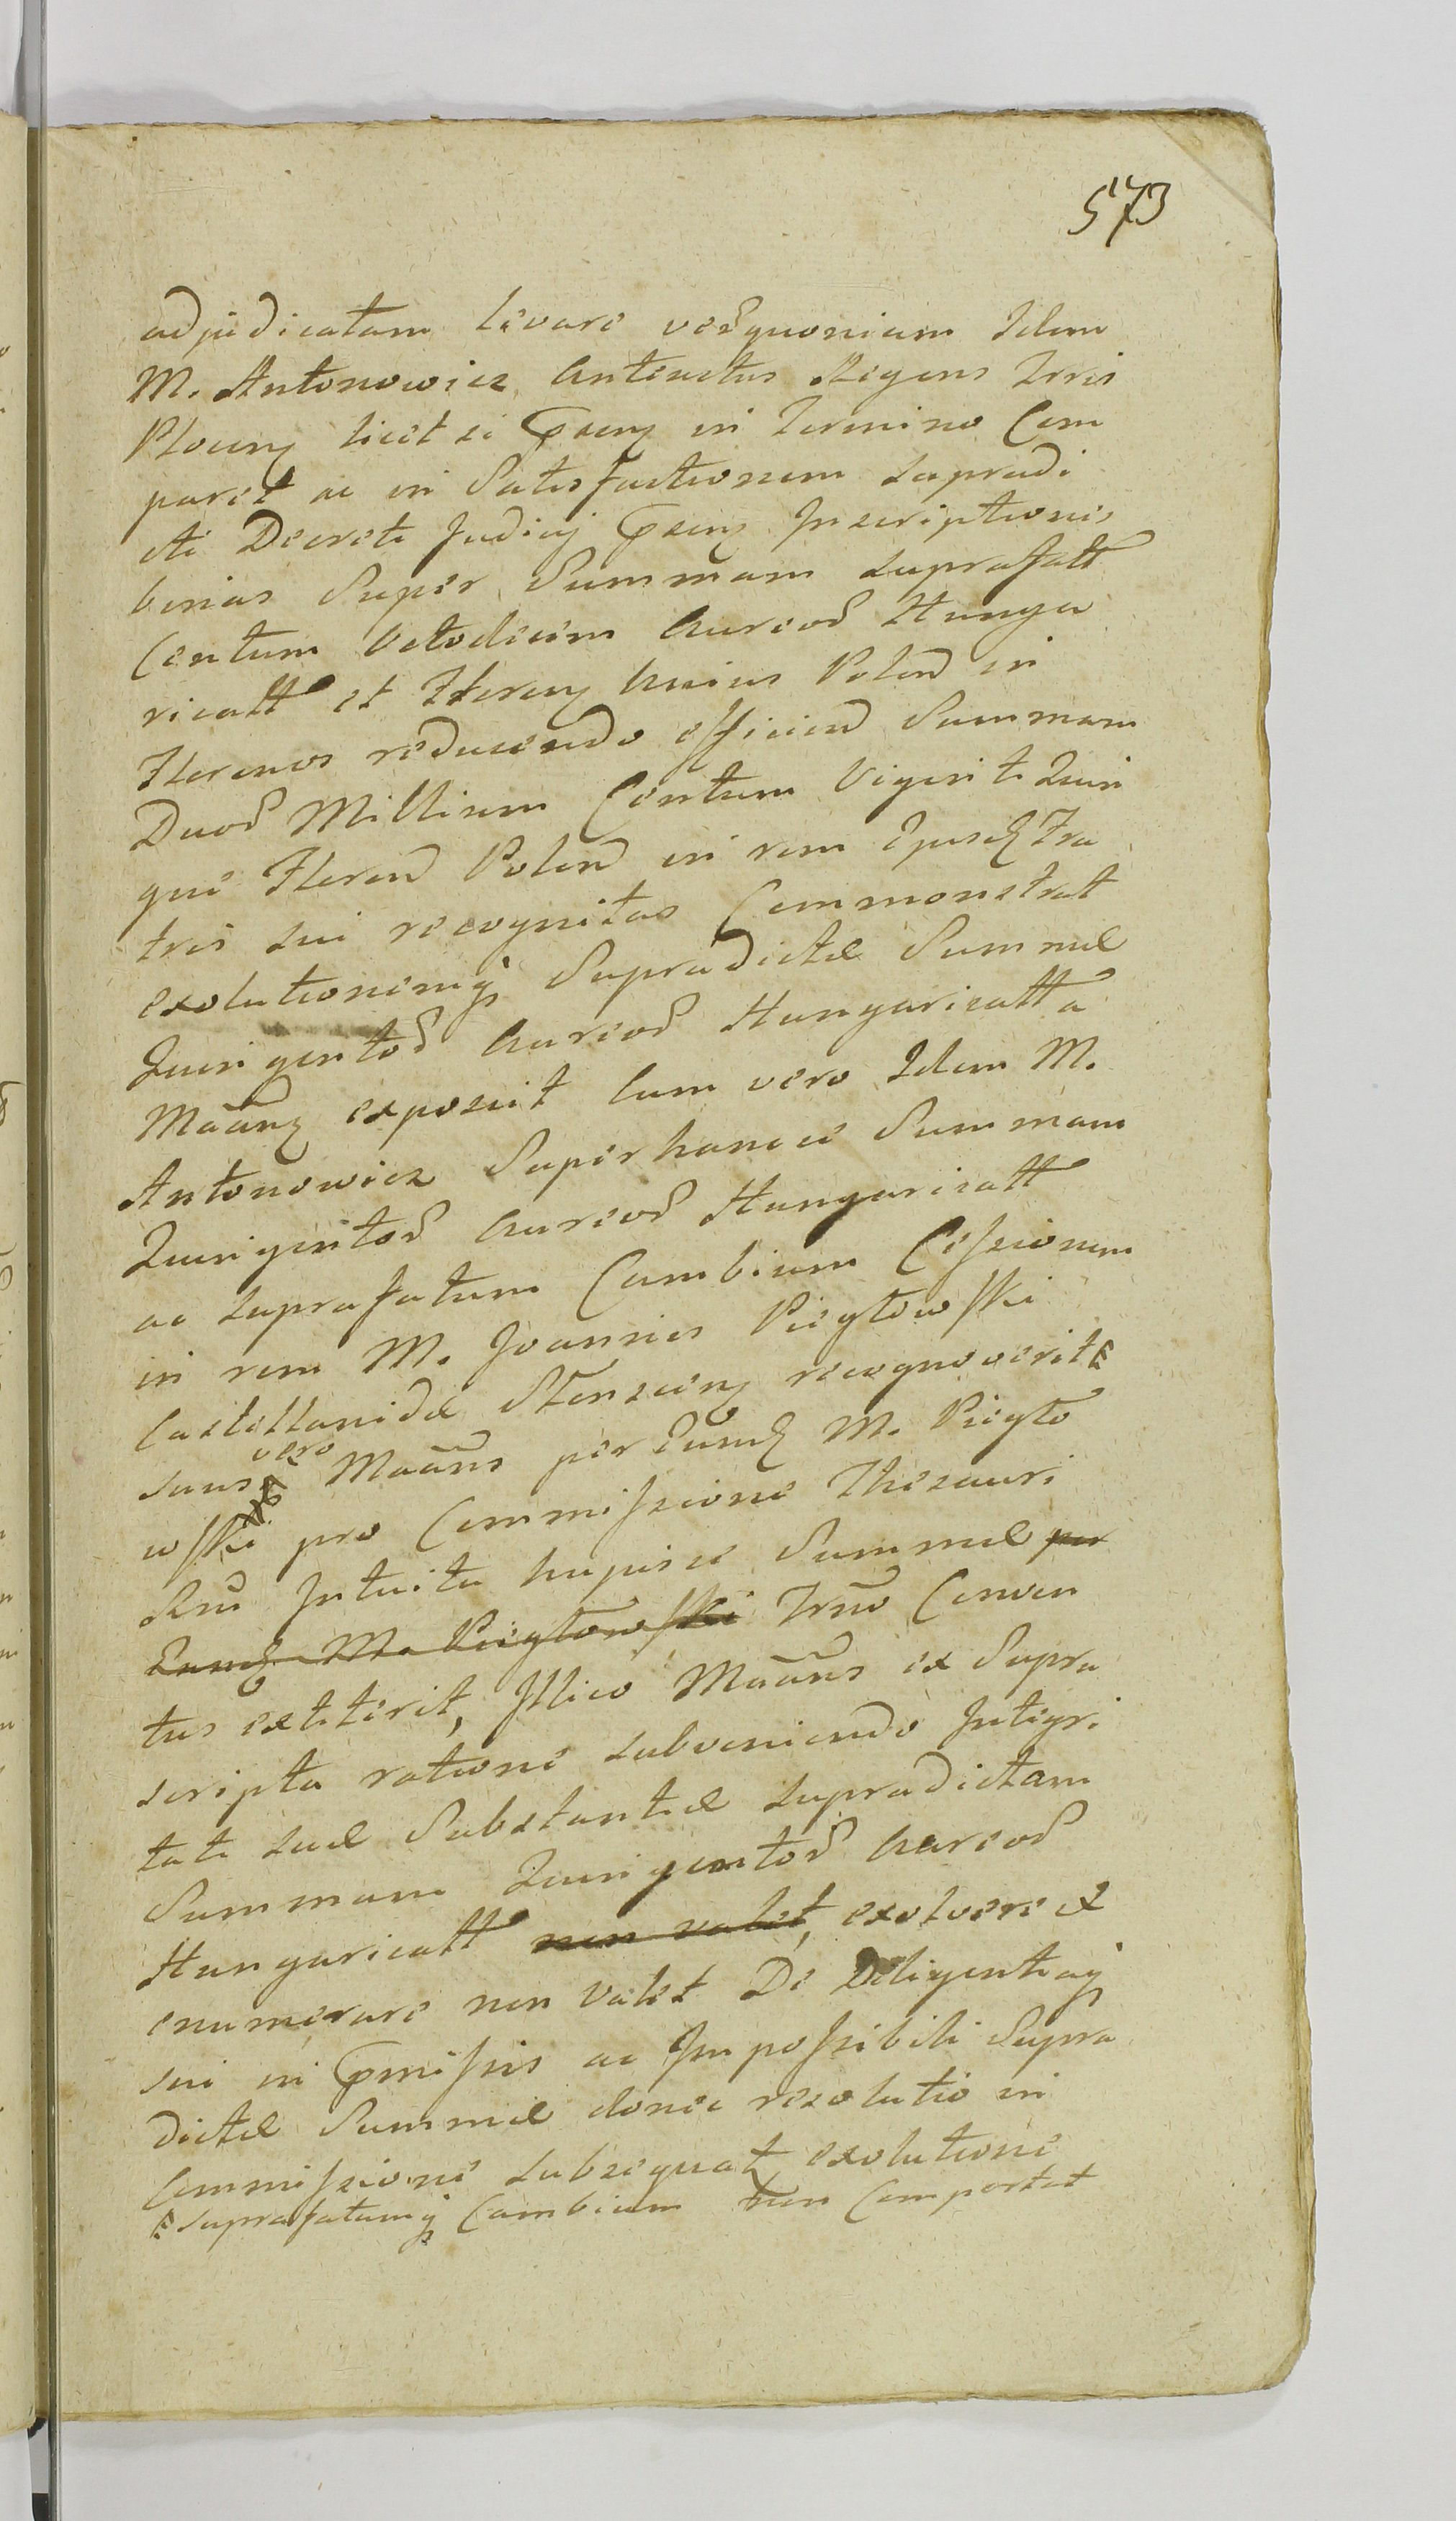 573
adjudicatam levare verũquoniam Idem
M. Antonowicz Anteactus Regens Trris
Plocens licet ei p̃sens in Termino Com
paret ac in Satisfactionem supradi
cti Decreti Judicij p̃sens Inscriptionis
binas Super Summam suprafatt
Centum Octodecim Aureor Hunga
ricatt et Floreny Unius Polon in
Florenos reducendo efficien Summam
Duor Millium Centum Viginti Quin
que Floren Polon in rem Ejusd Fra
tris sui recognitas Commonstrat
exolutionemq Supradictæ Summæ
Quingentor Aureor Hungaricatt a
Maãn exposcit Cum vero Idem M.
Antonowicz Super hancce Summam
Quingentor Aureor Hungaricatt
ac suprafatum Cambium Cessionem
in rem M. Joannis Pieglowski
Castellanidæ recognoverit
vero
Maãns per Eund M. Pieglo
wski pro Commissione Thesauri
Rni Intuitu hujusce Summæ per
Eund M. Pieglowski Trno Conven
tus extiterit, Illico Maãns ex Supra
scripta ratione subveniendo Integri
tati suæ Substantiæ supradictam
Summam Quingentor Aureor
Hungaricatt non valet, exolvere et
enumerare non valet De Diligentiaq
sui in p̃missis ac Impossibili Supra
dictæ Summæ donec resolutio in
Commissione subsequat exolutione
suprafatumq Cambium non Comportet